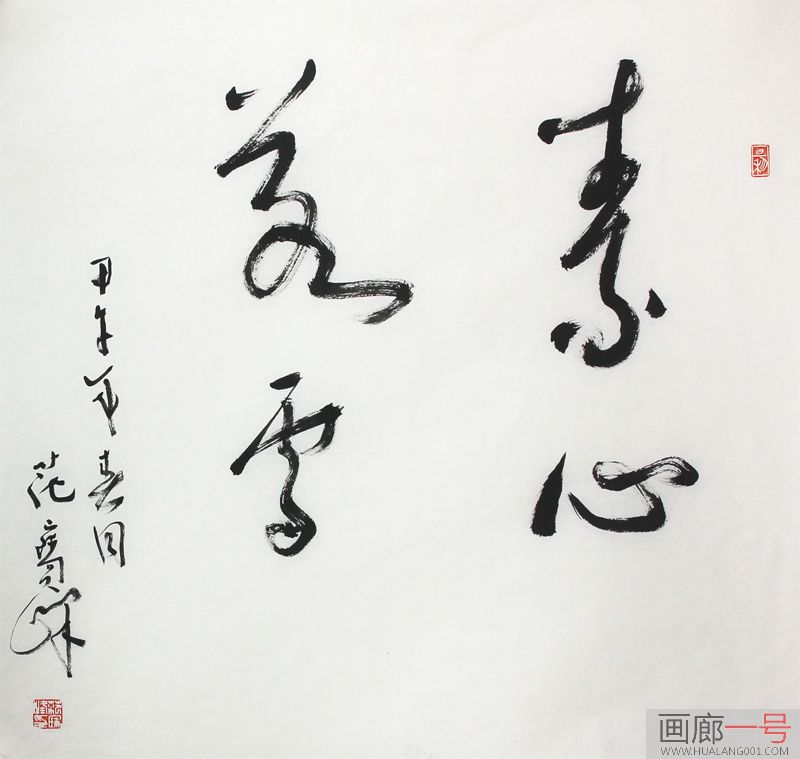 素心
若雪
甲午年春
范
画廊一号
WWW.HUALANG001.COM